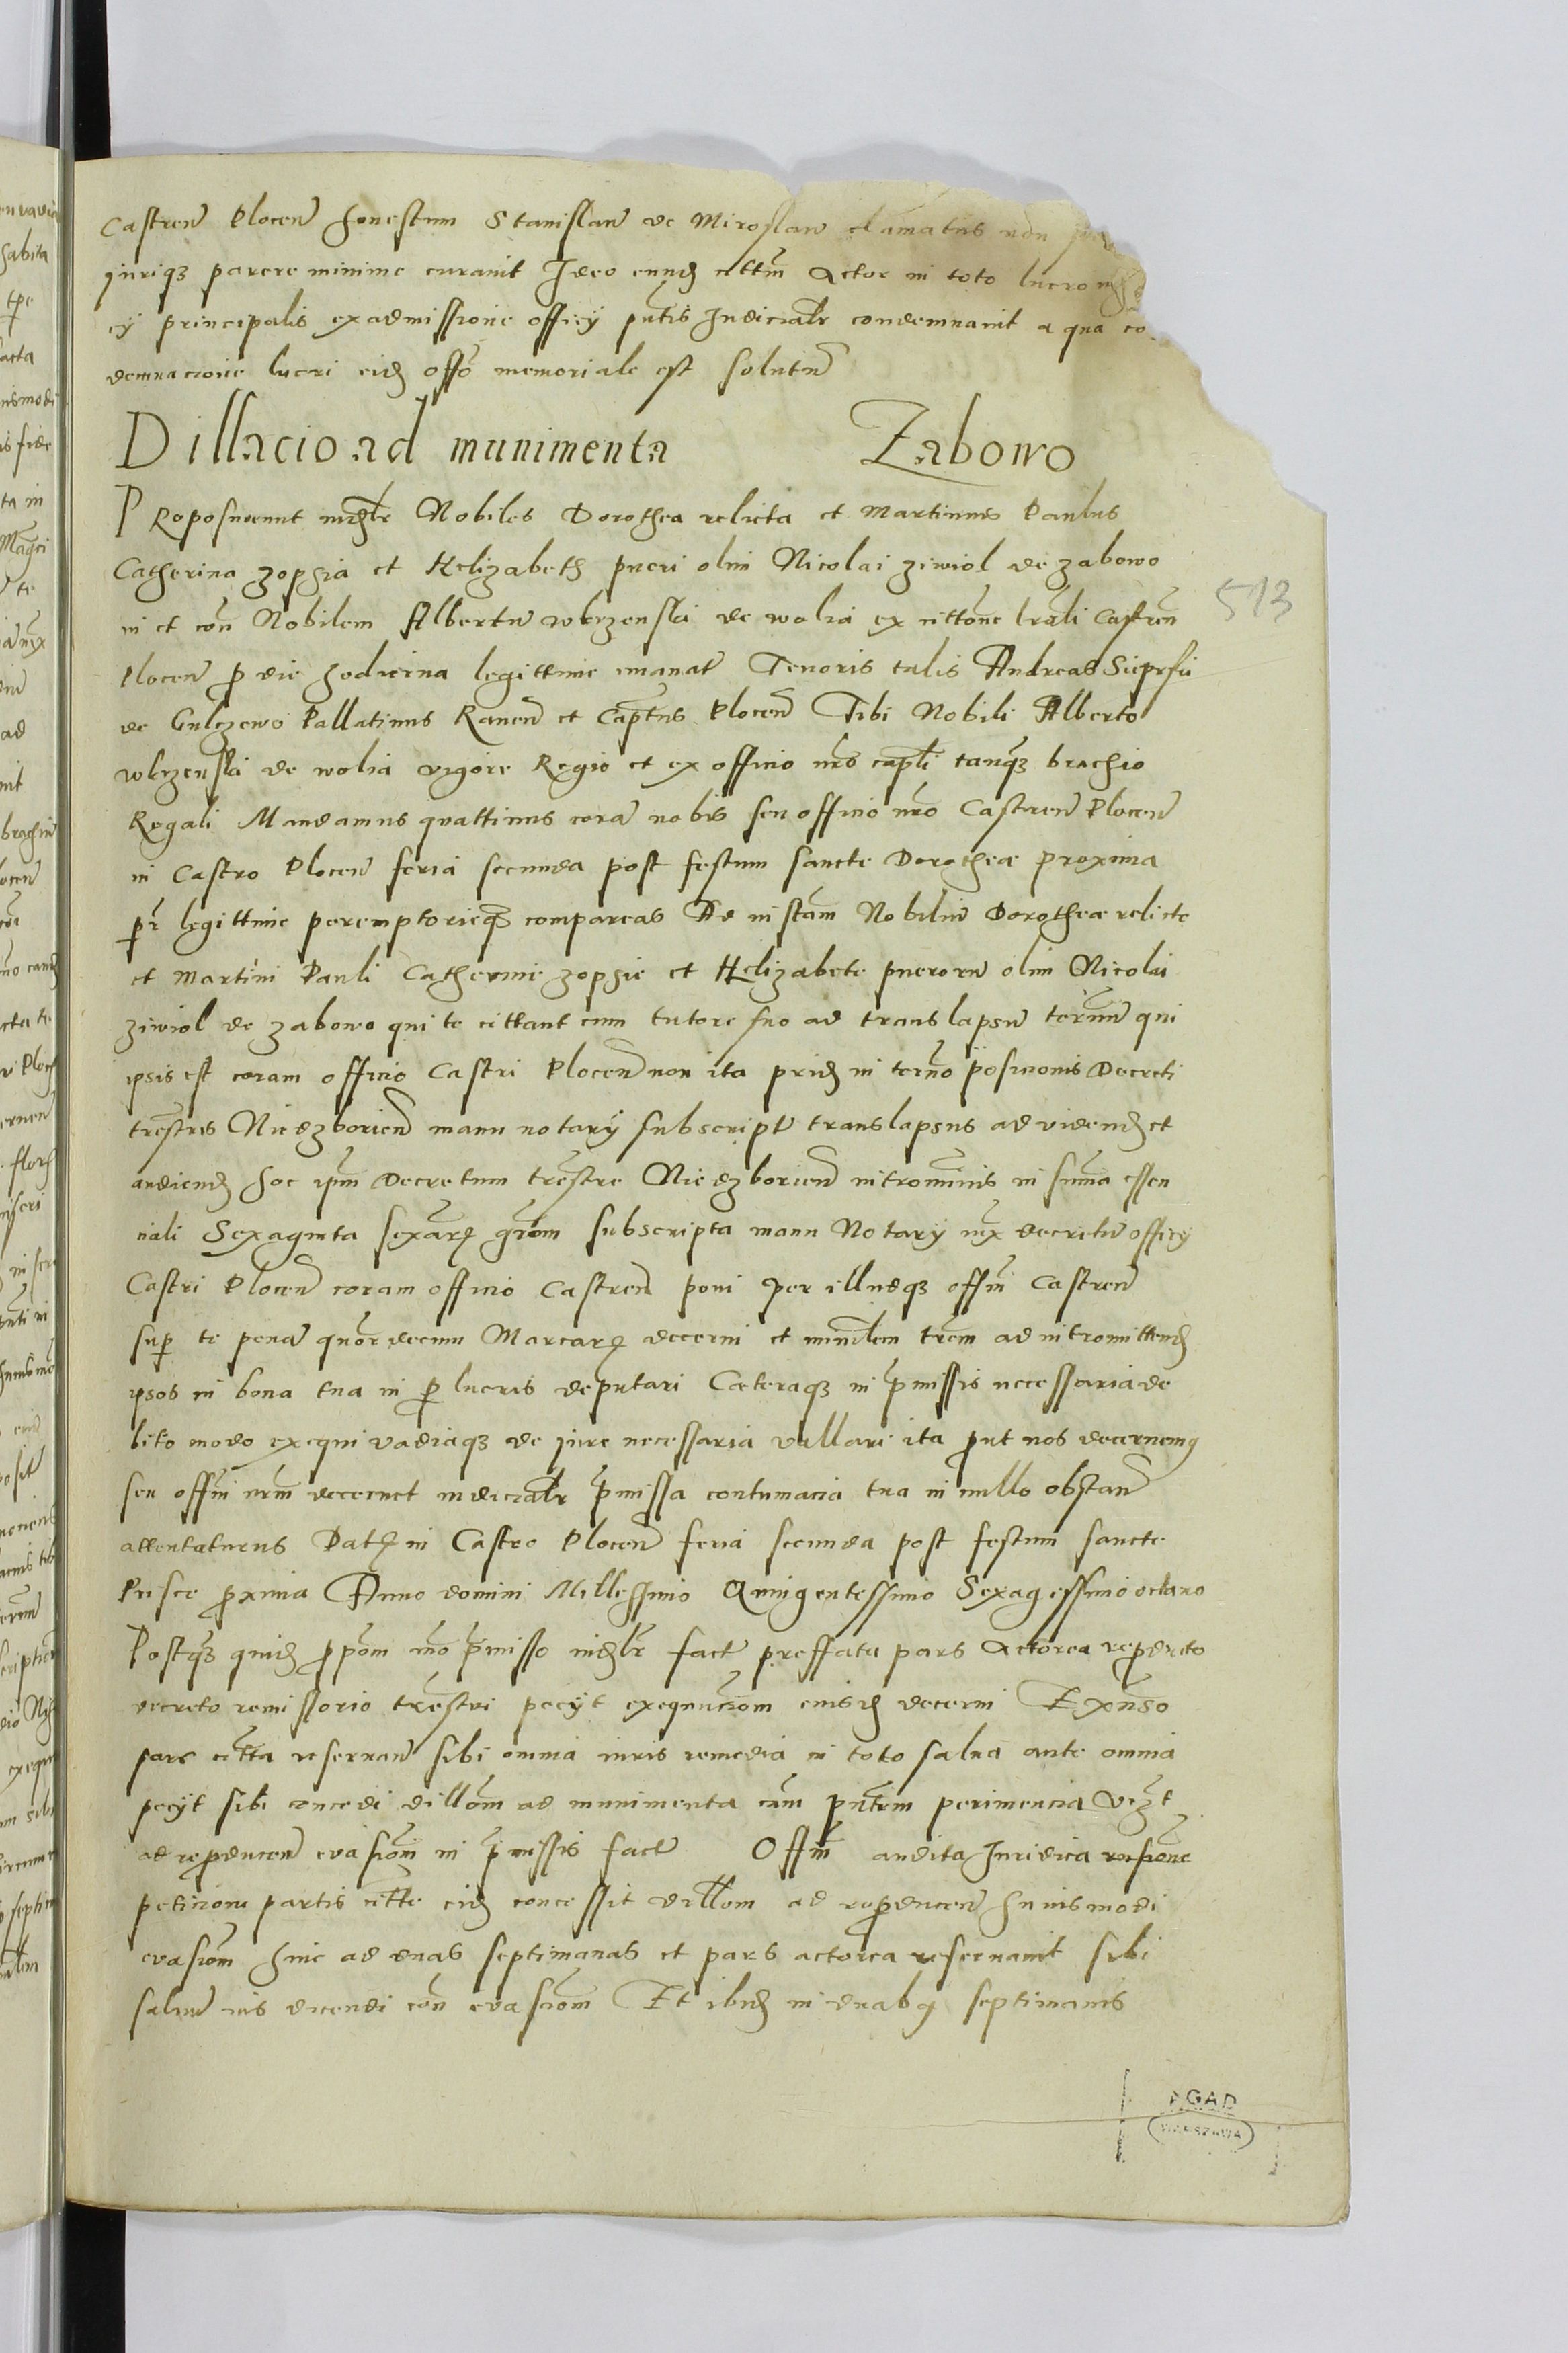 Castren Plocen honestum Stanislau de Miroslaw clamatus non
Juriq3 parere minime curavit Ideo eund cittm Actor in toto lucro
cy principalis ex admissione officy pntis Judicialr condemnavit a qua co
demnacione lucri eid offo memoriale est solutu
Dillacio ad munimenta Zabowo
PRoposuerunt Nobiles Dorothea relicta et Martinus Paulus
Catherina Zophia et Helizabeth pueri olim Nicolai Ziwiol de Zabowo
in et con Nobilem Albertu de wolia ex cittone lrali Castren
Plocen p die hodierna legittime manat Tenoris talis Andreas Sieprski
de Gulczewo Pallatinus Raven et Captus Plocen Tibi Nobili Alberto
de wolia vigore Regio et ex officio nro capli tanq3 brachio
Regali Mandamus quattinus cora nobis seu officio nro Castren Plocen
in Castro Plocen feria secunda post festum sancte Dorotheæ proxima
pr legittime peremptorieq3 compareas Ad instam Nobiliu Dorotheæ relicte
et Martini Pauli Catherinæ Zophie et Helizabete puerorum olim Nicolai
Ziwiol de Zabowo qui te cittant cum tutore suo ad translapsu termin qui
ipsis est coram officio Castri Plocen non ita prid in termo posicionis Decreti
trestris Niedzborien manu notary subscript translapsus ad videnд et
audiend hoc ipm Decretum trestre Niedzborien intromionis in suma essen
ciali Sexaginta sexagen grom subscripta manu Notary iux decretu officy
Castri Plocen coram officio Castren poni per illudq3 offm Castren
sup te pena quordecim Marcar decerni et mimlem trem ad intromittend
ipsos in bona tua in p lucris deputari Cæteraq3 in pmissis necessaria de
bito modo exequi vadiaq3 de jure necessaria vallari ita put nos decernemus
seu offm nrm decernet judicialr pmissa contumacia tua in nullo obstan
attentaturus Dat in Castro Plocen feria secunda post festum sancte
Prisce pxima Anno domini Millessimo Quingentessimo Sexagessimo octavo
Postq3 quid ppom mo pmisso fact preffata pars Actorea repducto
decreto remissorio trestri pecyt exequcciom eiusd decerni Ex adverso
pars citta reservan sibi omnia iuris remedia in toto salva ante omnia
pecyt sibi concedi dillom ad munimenta cam pntem perimencia Vez3t
ad repducen evasiom in pmissis fact Offm audita Juridica
peticione partis citte eid concessit dillom ad repducen huiusmodi
evasiom hinc ad duas septimanas et pars actorea reservavit sibi
salvu ius dicendi con evasiom Et ibid in duabus septimanis
513
AGAD
WARSZAWA